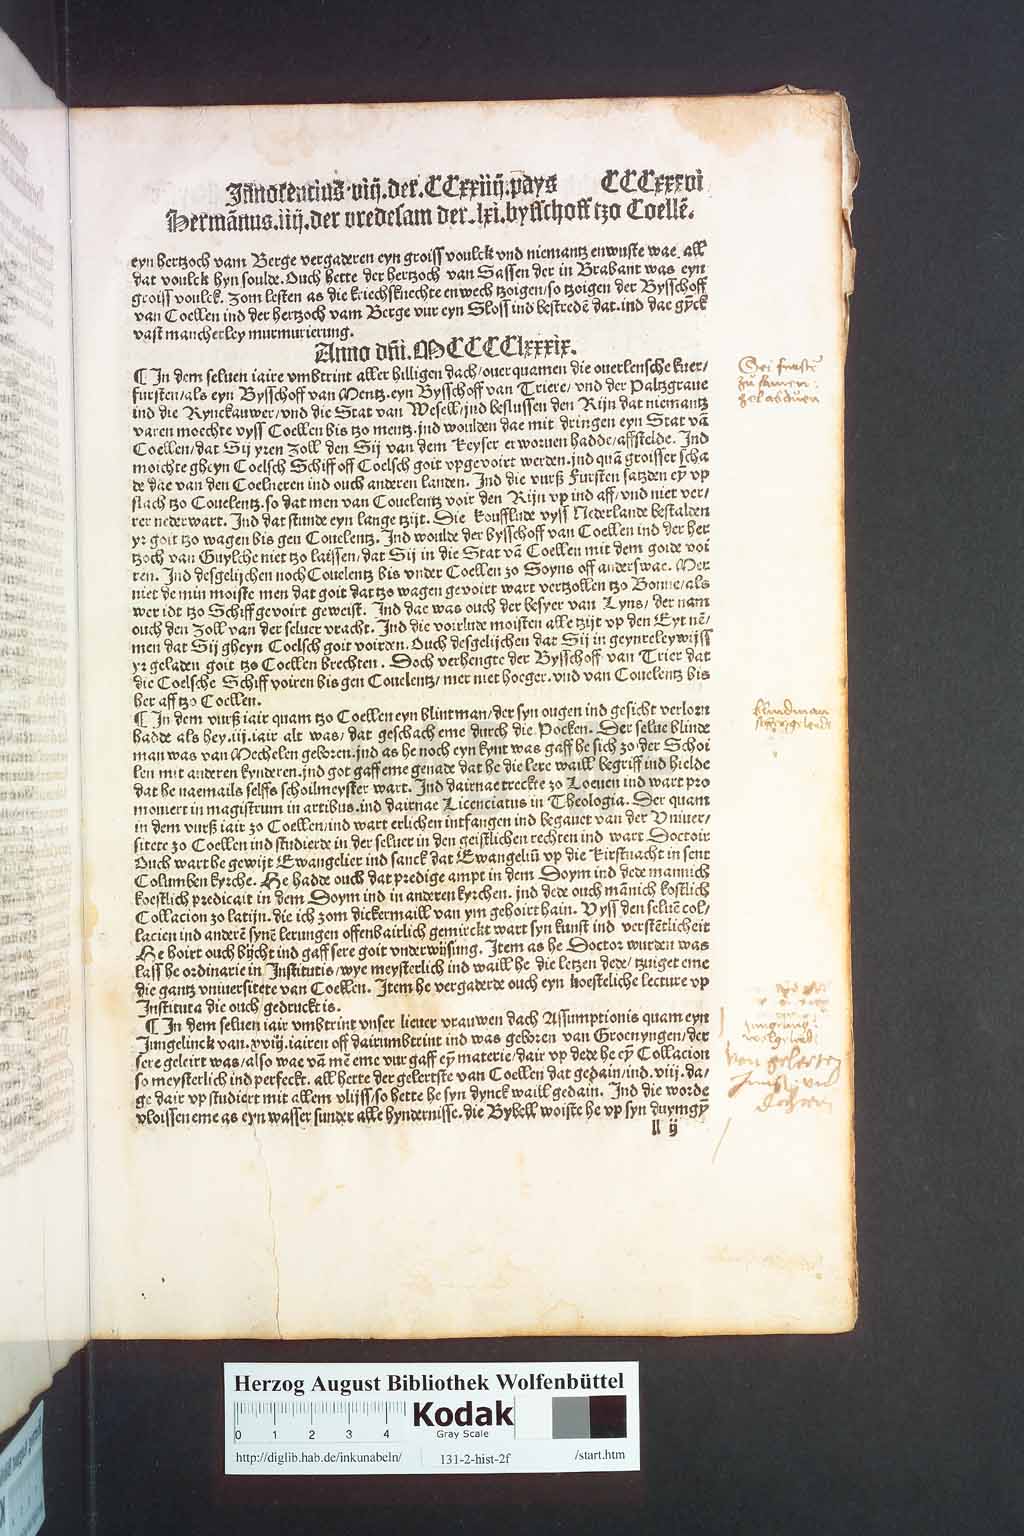 Jnnocencius.viij.der.CCxxiiij.pays CCCxxxvi
Hermānus.iiij.der vredesam der.lxi.bysschoff tzo Coellē.
eyn hertzoch vam Berge vergaderen eyn groiss voulck vnd niemantz enwuste wae all
dat voulck hyn soulde. Ouch hette der hertzoch van Sassen der in Brabant was eyn
groiss voulck. Zom lesten as die kriechsknechte enwech tzoigen/so tzoigen der Bysschoff
van Coellen ind der hertzoch vam Berge vur eyn Sloss ind bestredē dat.ind dae gyck
vast mancherley murmurierung.
Anno dñi.MCCCClxxxix.
¶ In dem seluen iaire vmbtrint aller hilligen dach/ouer quamen die ouerlensche kuer/
fursten/als eyn Bysschoff van Mentz.eyn Bysschoff van Triere/vnd der Paltzgraue
ind die Rynckauwer/vnd die Stat van Wesell/jnd beslussen den Rijn dat niemantz
varen moechte vyss Coellen bis tzo mentz.jnd woulden dae mit dringen eyn Stat vā
Coellen/dat Sij yren Zoll den Sij van dem Keyser erworuen hadde/affstelde. Ind
moichte gheyn Coelsch Schiff off Coelsch goit vpgevoirt werden.jnd quā groisser scha
de dae van den Coelneren ind ouch anderen landen. Ind die vurß Fursten satzden eȳ vp
slach tzo Couelentz.so dat men van Couelentz voir den Rijn vp ind aff/vnd niet ver/
rer nederwart. Ind dat stunde eyn lange tzijt. Die koufflude vyss Nederlande bestalden
yr goit tzo wagen bis gen Couelentz. Ind woulde der bysschoff van Coellen ind der her
tzoch van Guylche niet tzo laissen/dat Sij in die Stat vā Coellen mit dem goide voi
ren. Ind desgelijchen noch Couelentz bis vnder Coellen zo Soyns off anderswae. Mer
niet de min moiste men dat goit dat tzo wagen gevoirt wart vertzollen tzo Bonne/als
wer idt tzo Schiff gevoirt geweist. Ind dae was ouch der besyer van Lyns/der nam
ouch den Zoll van der seluer vracht. Ind die voirlude moisten alle tzijt vp den Eyt nē/
men dat Sij gheyn Coelsch goit voirden. Ouch desgelijchen dat Sij in geynreleywijss
yr geladen goit tzo Coellen brechten. Doch verhengte der Bysschoff van Trier dat
die Coelsche Schiff voiren bis gen Couelentz/mer niet hoeger.vnd van Couelentz bis
her aff tzo Coellen.
¶ In dem vurß iair quam tzo Coellen eyn blintman/der syn ougen ind gesicht verlorn
hadde als hey.iij.iair alt was/dat geschach eme durch die Pocken. Der selue blinde
man was van Mechelen geboren.jnd as he noch eyn kynt was gaff he sich zo der Schoi
len mit anderen kynderen.jnd got gaff eme genade dat he die lere waill begriff ind hielde
dat he naemails selffs schoilmeyster wart. Ind dairnae treckte zo Loeuen ind wart pro
mouiert in magistrum in artibus.ind dairnae Licenciatus in Theologia. Der quam
in dem vurß iair zo Coellen/ind wart erlichen intfangen ind begauet van der Vniuer/
sitete zo Coellen ind studierde in der seluer in den geistlichen rechten ind wart Doctoir
Ouch wart he gewijt Ewangelier ind sanck dat Ewangeliū vp die Kirstnacht in sent
Columben kyrche. He hadde ouch dat predige ampt in dem Doym ind dede mannich
koestlich predicait in dem Doym ind in anderen kyrchen. jnd dede ouch mānich kostlich
Collacion zo latijn.die ich zom dickermaill van ym gehoirt hain. Vyss den seluē col/
lacien ind anderē synē lerungen offenbairlich gemirckt wart syn kunst ind verstētlicheit
He hoirt ouch bijcht ind gaff sere goit vnderwijsing. Item as he Doctor wurden was
lass he ordinarie in Institutis/wye meysterlich ind waill he die letzen dede/tzuiget eme
die gantz vniuersitete van Coellen. Item he vergaderde ouch eyn koesteliche lecture vp
Instituta die ouch gedruckt is.
¶ In dem seluen iair vmbtrint vnser lieuer vrauwen dach Assumptionis quam eyn
Jungelinck van.xviij.iairen off dairumbtrint ind was geboren van Groenyngen/der
sere geleirt was/also wae vā mē eme vur gaff eȳ materie/dair vp dede he eȳ Collacion
so meysterlich ind perfeckt. all hette der gelertste van Coellen dat gedain/ind.viij.da/
ge dair vp studiert mit allem vlijss/so hette he syn dynck waill gedain. Ind die worde
vloissen eme as eyn wasser sunder alle hyndernisse.die Bybell woiste he vp syn duymgȳ
ll ij
blindman
Herzog August Bibliothek Wolfenbüttel
0 1 2 3 4
Kodak
Gray Scale
http://diglib.hab.de/inkunabeln/ 131-2-hist-2f /start.htm